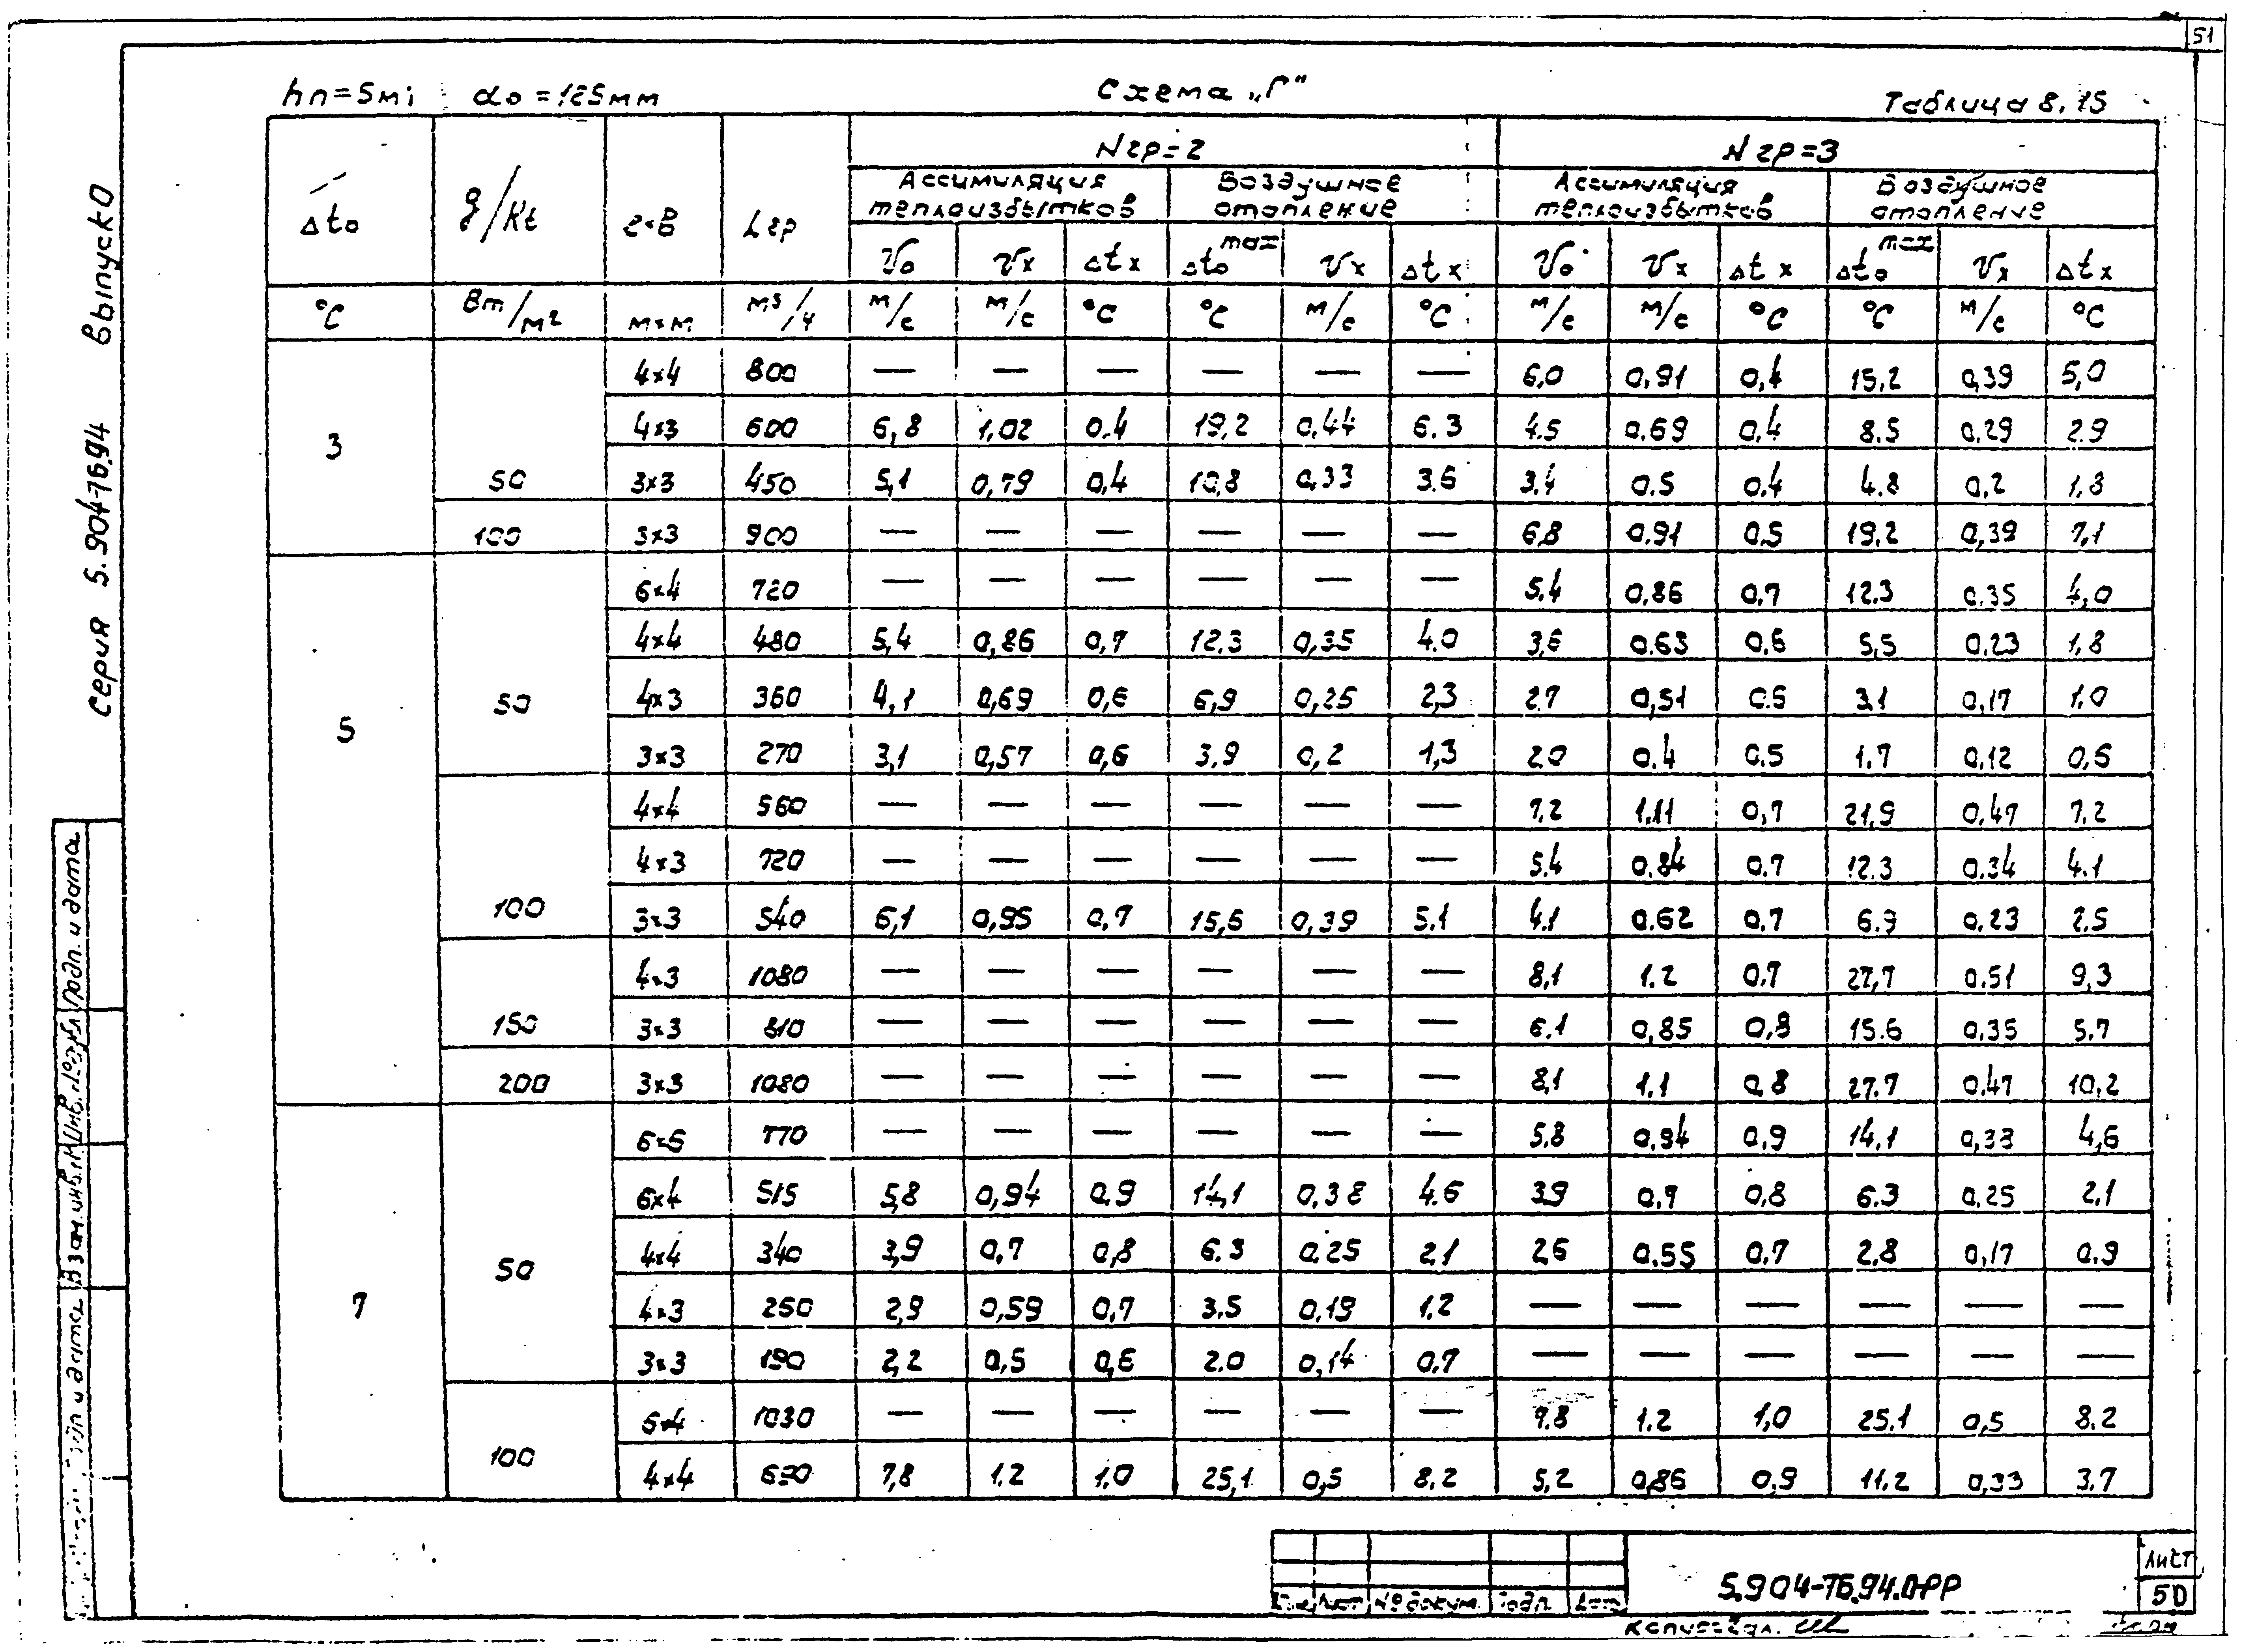 51
hп=5м; do=125мм
Схема „Г"
Таблица 8.15
Δto q/Kt г×в Lгр Nгр=2 Nгр=3
Ассимиляция теплоизбытков Воздушное отопление Ассимиляция теплоизбытков Воздушное отопление
Vo Vx Δtx Δto max Vx Δtx Vo Vx Δtx Δto max Vx Δtx
°C Вт/м2 м×м м3/ч м/с м/с °C °C м/с °C м/с м/с °C °C м/с °C
3 50 4×4 800 — — — — — — 6,0 0,91 0,4 15,2 0,39 5,0
4×3 600 6,8 1,02 0.4 19,2 0,44 6.3 4.5 0,69 0,4 8.5 0.29 2.9
3×3 450 5,1 0,79 0,4 10,8 0,33 3.6 3.4 0.5 0.4 4.8 0,2 1,8
100 3×3 900 — — — — — — 6,8 0.91 0.5 19,2 0,39 7,1
5 50 6×4 720 — — — — — — 5.4 0,86 0,7 12.3 0.35 4,0
4×4 480 5,4 0,86 0,7 12.3 0,35 4.0 3,6 0.63 0,6 5,5 0.23 1,8
4×3 360 4,1 0,69 0,6 6,9 0,25 2,3 2.7 0,51 0.5 3.1 0,17 1,0
3×3 270 3,1 0,57 0,6 3.9 0,2 1,3 2.0 0.4 0.5 1.7 0,12 0,6
100 4×4 960 — — — — — — 7,2 1,11 0,7 21,9 0,47 7,2
4×3 720 — — — — — — 5.4 0.84 0.7 12.3 0.34 4.1
3×3 540 6,1 0,95 0,7 15,6 0,39 5.1 4.1 0.62 0,7 6.9 0,23 2,5
150 4×3 1080 — — — — — — 8,1 1.2 0.7 27,7 0.51 9,3
3×3 810 — — — — — — 6.1 0,85 0,8 15.6 0,35 5.7
200 3×3 1080 — — — — — — 8,1 1,1 0,8 27.7 0.47 10,2
7 50 6×6 770 — — — — — — 5.8 0,94 0,9 14.1 0,38 4,6
6×4 515 5,8 0,94 0,9 14,1 0,38 4.6 3.9 0.7 0,8 6.3 0.25 2,1
4×4 340 3,9 0.7 0,8 6.3 0.25 2,1 2,6 0.55 0,7 2,8 0,17 0.9
4×3 250 2,9 0,59 0,7 3.5 0,19 1,2 — — — — — —
3×3 190 2,2 0,5 0,6 2.0 0,14 0,7 — — — — — —
100 6×4 1030 — — — — — — 7.8 1.2 1,0 25.1 0,5 8.2
4×4 690 7,8 1.2 1,0 25,1 0,5 8.2 5,2 0,86 0,9 11.2 0,33 3.7
Серия 5.904-76.94 Выпуск 0
Подп. и дата
Взам. инв. №
Подп. и дата
Лист № докум. Подп. Дата
5.904-76.94.0-РР
Лист
50
Копировал